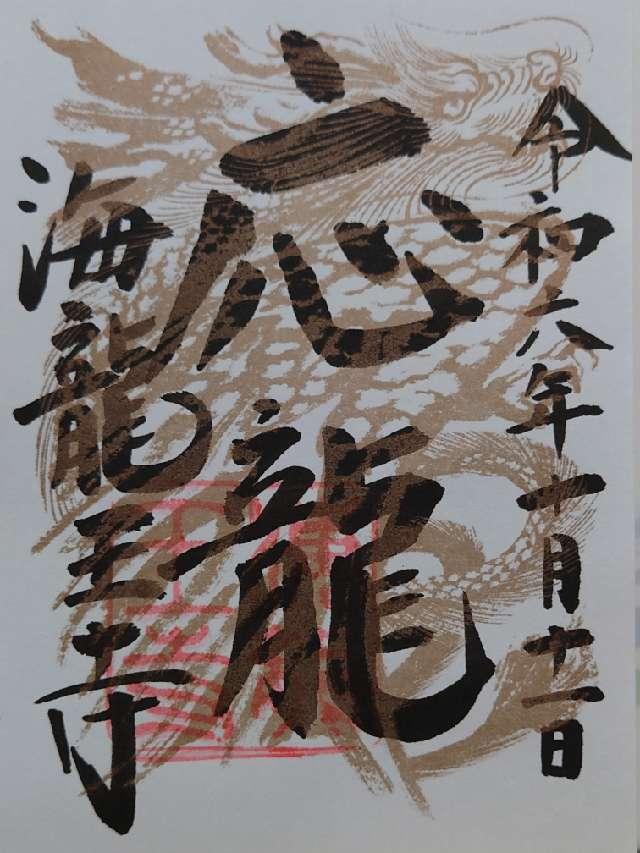 令和六年十月十一日
応龍
海龍王寺